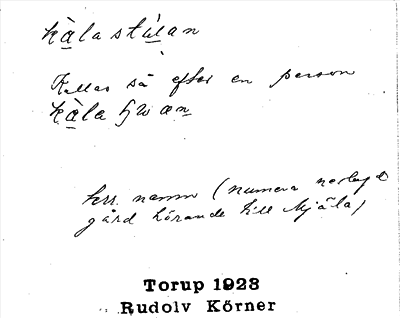 kàlastúlan
Kallas så efter en person
kàla
hrs. namn (numera nerlagd
gård hörande till Mjäla)
Torup 1928
Rudolv Körner